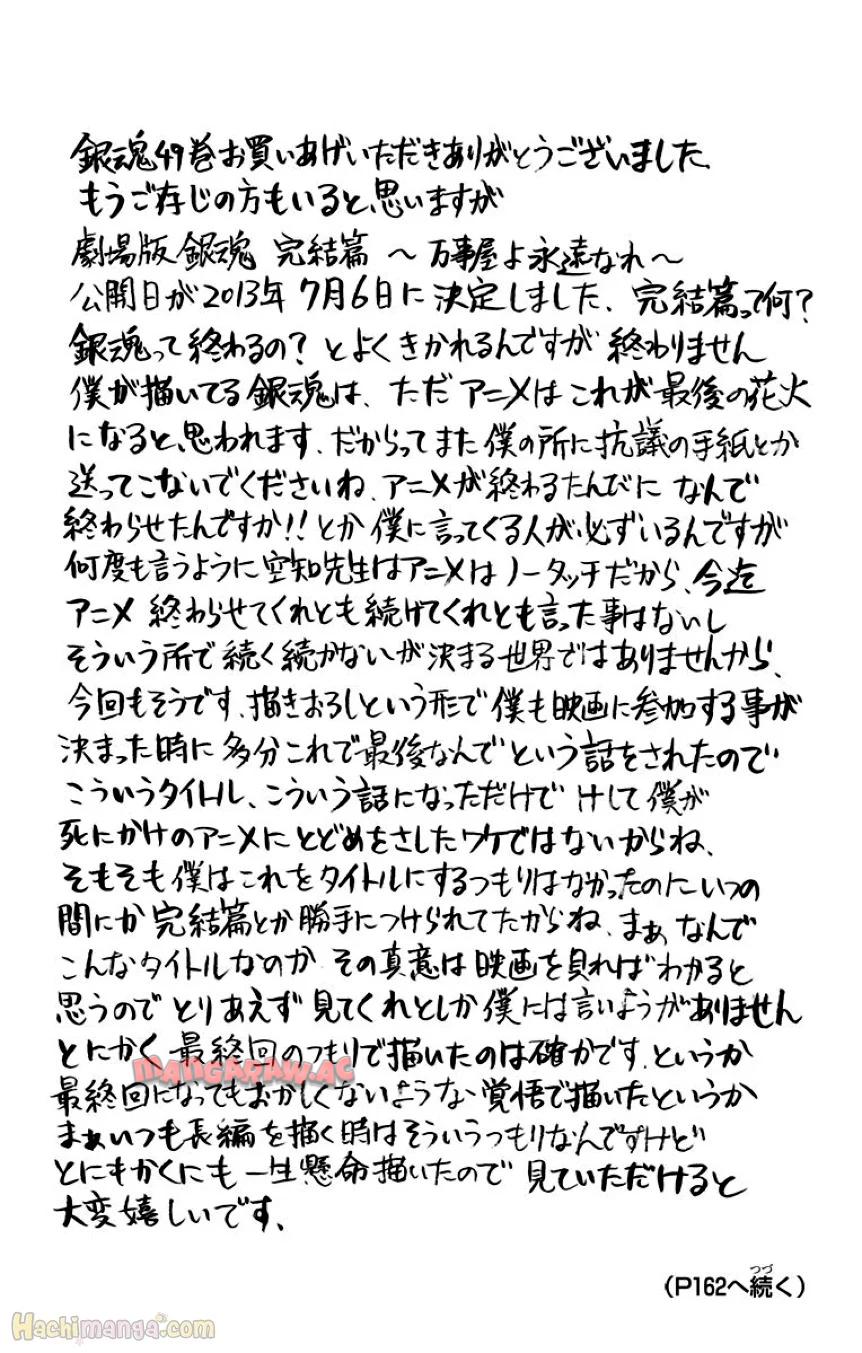 銀魂49巻お買いあげいただきありがとうございました、
もうご存じの方もいると思いますが
劇場版 銀魂 完結篇 〜 万事屋よ永遠なれ〜
公開日が2013年7月6日に決定しました、完結篇って何?
銀魂って終わるの? とよくきかれるんですが 終わりません
僕が描いてる銀魂は、ただアニメはこれが最後の花火
になると思われます、だからってまた僕の所に抗議の手紙とか
送ってこないでくださいね、アニメが終わるたんびに なんで
終わらせたんですか!!とか僕に言ってくる人が必ずいるんですが
何度も言うように空知先生はアニメはノータッチだから、今迄
アニメ 終わらせてくれとも続けてくれとも言った事はないし
そういう所で続く続かないが決まる世界ではありませんから、
今回もそうです、描きおろしという形で僕も映画に参加する事が
決まった時に多分これで最後なんでという話をされたので
こういうタイトル、こういう話になっただけで けして僕が
死にかけのアニメにとどめをさしたワケではないからね、
そもそも僕はこれをタイトルにするつもりはなかったのにいつの
間にか 完結篇とか勝手につけられてたからね、まぁなんで
こんなタイトルなのか その真意は映画を見ればわかると
思うので とりあえず見てくれとしか僕には言いようがありません
とにかく最終回のつもりで描いたのは確かです、というか
最終回になってもおかしくないような覚悟で描いたというか
まぁいつも長編を描く時はそういうつもりなんですけど
とにもかくにも一生懸命描いたので 見ていただけると
大変嬉しいです、
MANGARAW.AC
(P162へ続く)
つづ
Hachimanga.com